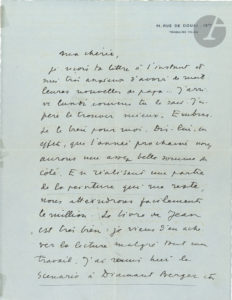 14, RUE DE DOUAI, IXE
ma chérie,
je reçois ta lettre à l'instant et
suis très anxieux d'avoir de meil
leures nouvelles de papa. J'arri
ve lundi comme tu le sais. J'es
père le trouver mieux. Embras
se le bien pour moi. Dis lui, en
effet, que l'année prochaine nous
aurons une assez belle somme de
côté. En réalisant une partie
de la peinture qui me reste,
nous atteindrons facilement
le million. Le livre de Jean
est très bien. je viens d'en ache
ver la lecture malgré tout mon
travail. J'ai remis hier le
scénario à Diamant Berger et